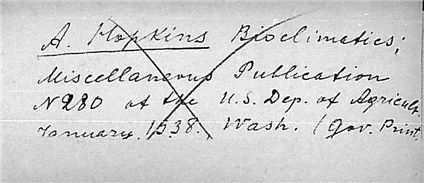 A. Hopkins Bioclimatics;
Miscellaneous Publication
N280 of the U.S. Dep. of Agricult.
January. 1938. Wash. (Gov. Print.